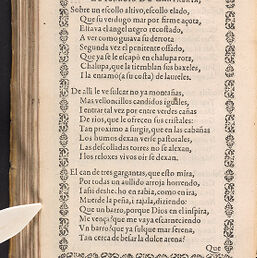 Sobre un escollo altivo, escollo elado,
Que su verdugo mar por firme açota,
Estava el angel negro recostado,
A ver como guiava su derrota
Segunda vez el penitente ossado,
Que ya se le escapò en chalupa rota,
Chalupa, que le tiemblan sus baxeles,
I la enramò (a su costa) de laureles.
De alli le ve sulcar no ya montañas,
Mas velloncillos candidos iguales,
I entrar tal vez por entre verdes cañas
De rios, que le ofrecen sus cristales:
Tan proximo a surgir, que en las cabañas
Los humos dexan verse pastorales,
Las descolladas torres no se alexan,
I los reloxes vivos oir se dexan.
El can de tres gargantas, que esto mira,
Por todas un aullido arroja horrendo,
I assi desta: ho en rabia, como en ira,
Muerde la peña, i rajala, diziendo:
Que un barro, porque Dios en el inspira,
Me vença! que me vaya escarneciendo
Vn barro! que ya sulque mar serena,
Tan cerca de besar la dulce arena?
Que